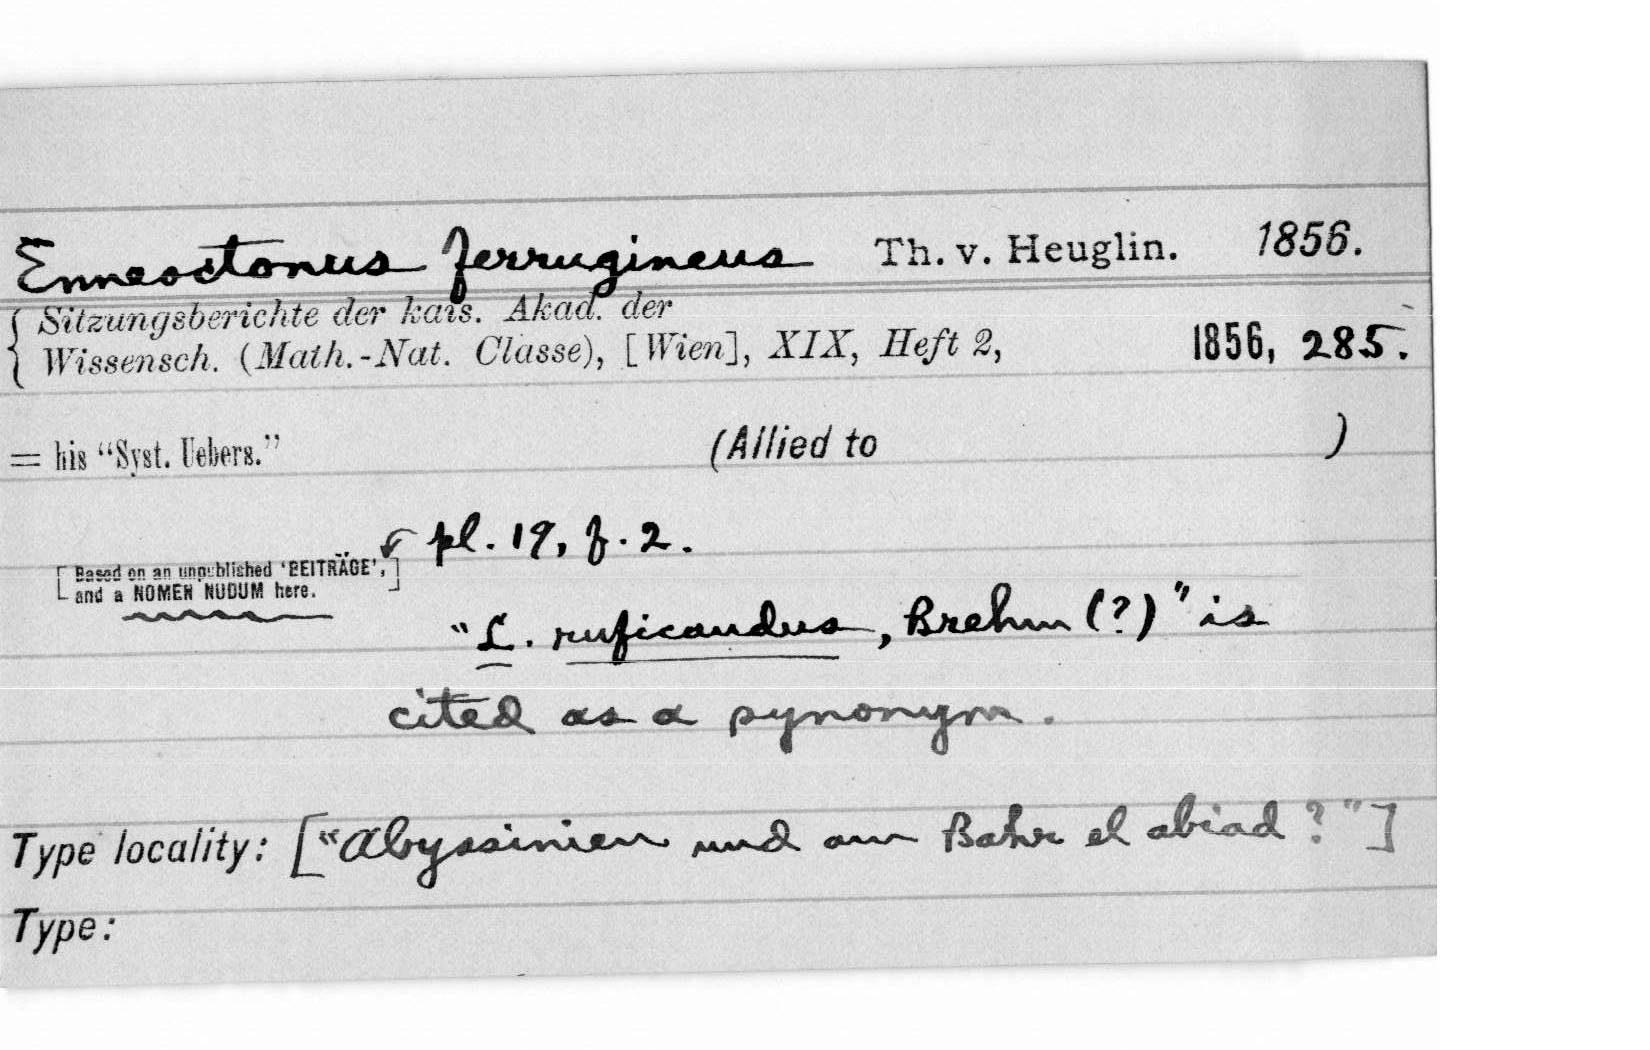 Enneoctonus ferrugineus Th. v. Heuglin. 1856.
Sitzungsberichte der kais. Akad. der
Wissensch. (Math.-Nat. Classe), [Wien], XIX, Heft 2, 1856, 285.
= his "Syst. Uebers." (Allied to )
pl. 19, f. 2.
[Based on an unpublished 'BEITRÄGE',]
and a NOMEN NUDUM here.
"L. ruficaudus, Brehm (?)" is
cited as a synonym.
Type locality: ["Abyssinien und am Bahr el abiad ?"]
Type: